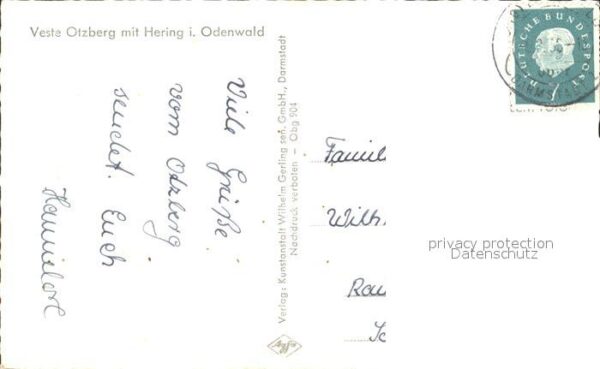 Veste Otzberg mit Hering i. Odenwald
Viele Grüße
vom Otzberg
sendet Euch
Hannelore
Verlag: Kunstanstalt Wilhelm Gerling sen. GmbH., Darmstadt
Nachdruck verboten — Obg 904
Agfa
DEUTSCHE BUNDESPOST
7
Famil
Wilh
Rau
privacy protection
Datenschutz